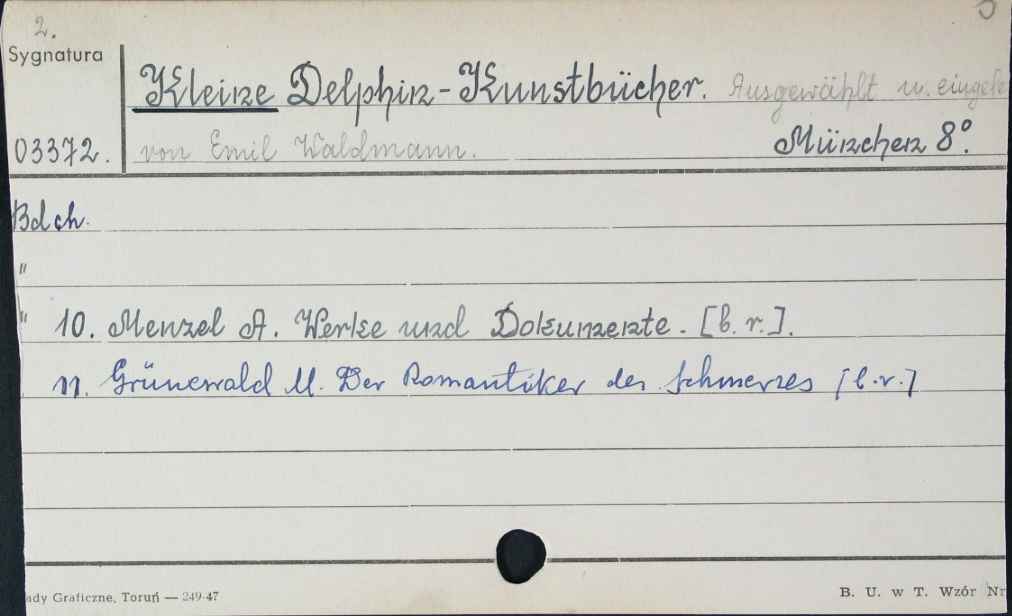 2.
Sygnatura
Kleine Delphin-Kunstbücher. Ausgewählt u. eingele
03372. von Emil Waldmann. München 8º.
Bdch.
"
" 10. Menzel A. Werke und Dokumente. [b. r.].
11. Grünewald M. Der Romantiker des Schmerzes [b.r.]
ady Graficzne, Toruń — 249-47
B. U. w T. Wzór Nr